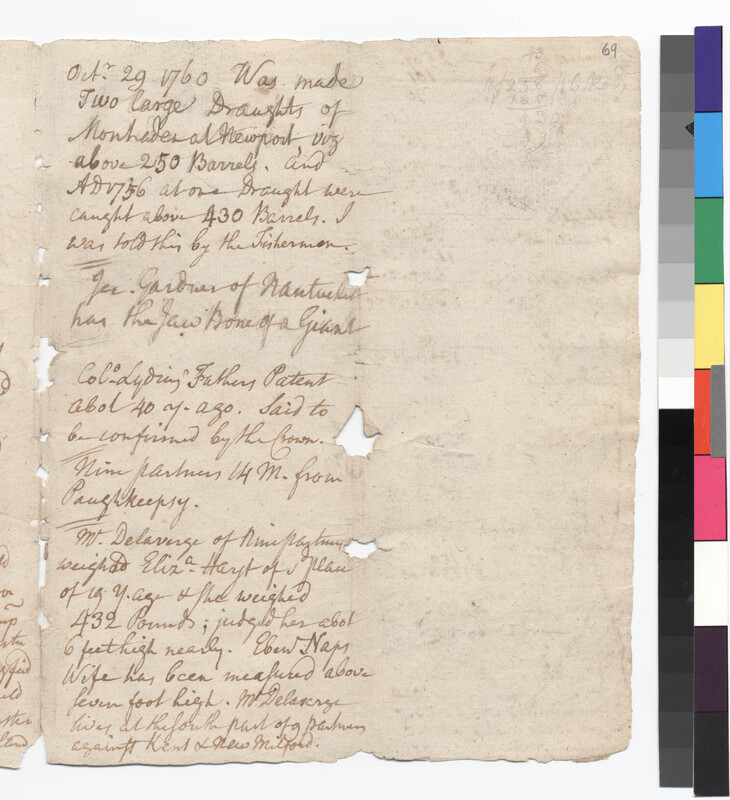 69
Octr. 29 1760 Was made
Two large Draughts of
Menhaden at Newport, viz
above 250 Barrels. And
AD 1756 at one Draught were
caught above 430 Barrels. I
was told this by the Fishermen.
Jer. Gardner of Nantucket
has the Jaw Bone of a Giant
Colo. Lydius' Fathers Patent
abot 40 y. ago. Said to
be confirmed by the Crown.
Nine partners 14 M. from
Poughkeepsy.
Mr. Delaverge of Nine partners
weighed Eliza. Hayt of s place
of 19 Y. age & she weighed
432 Pounds; judged her abot
6 feet high nearly. Ebenr. Naps
Wife has been measured above
seven foot high. Mr Delaverge
lives at the South part of 9 partners
against Kent & New Milford.